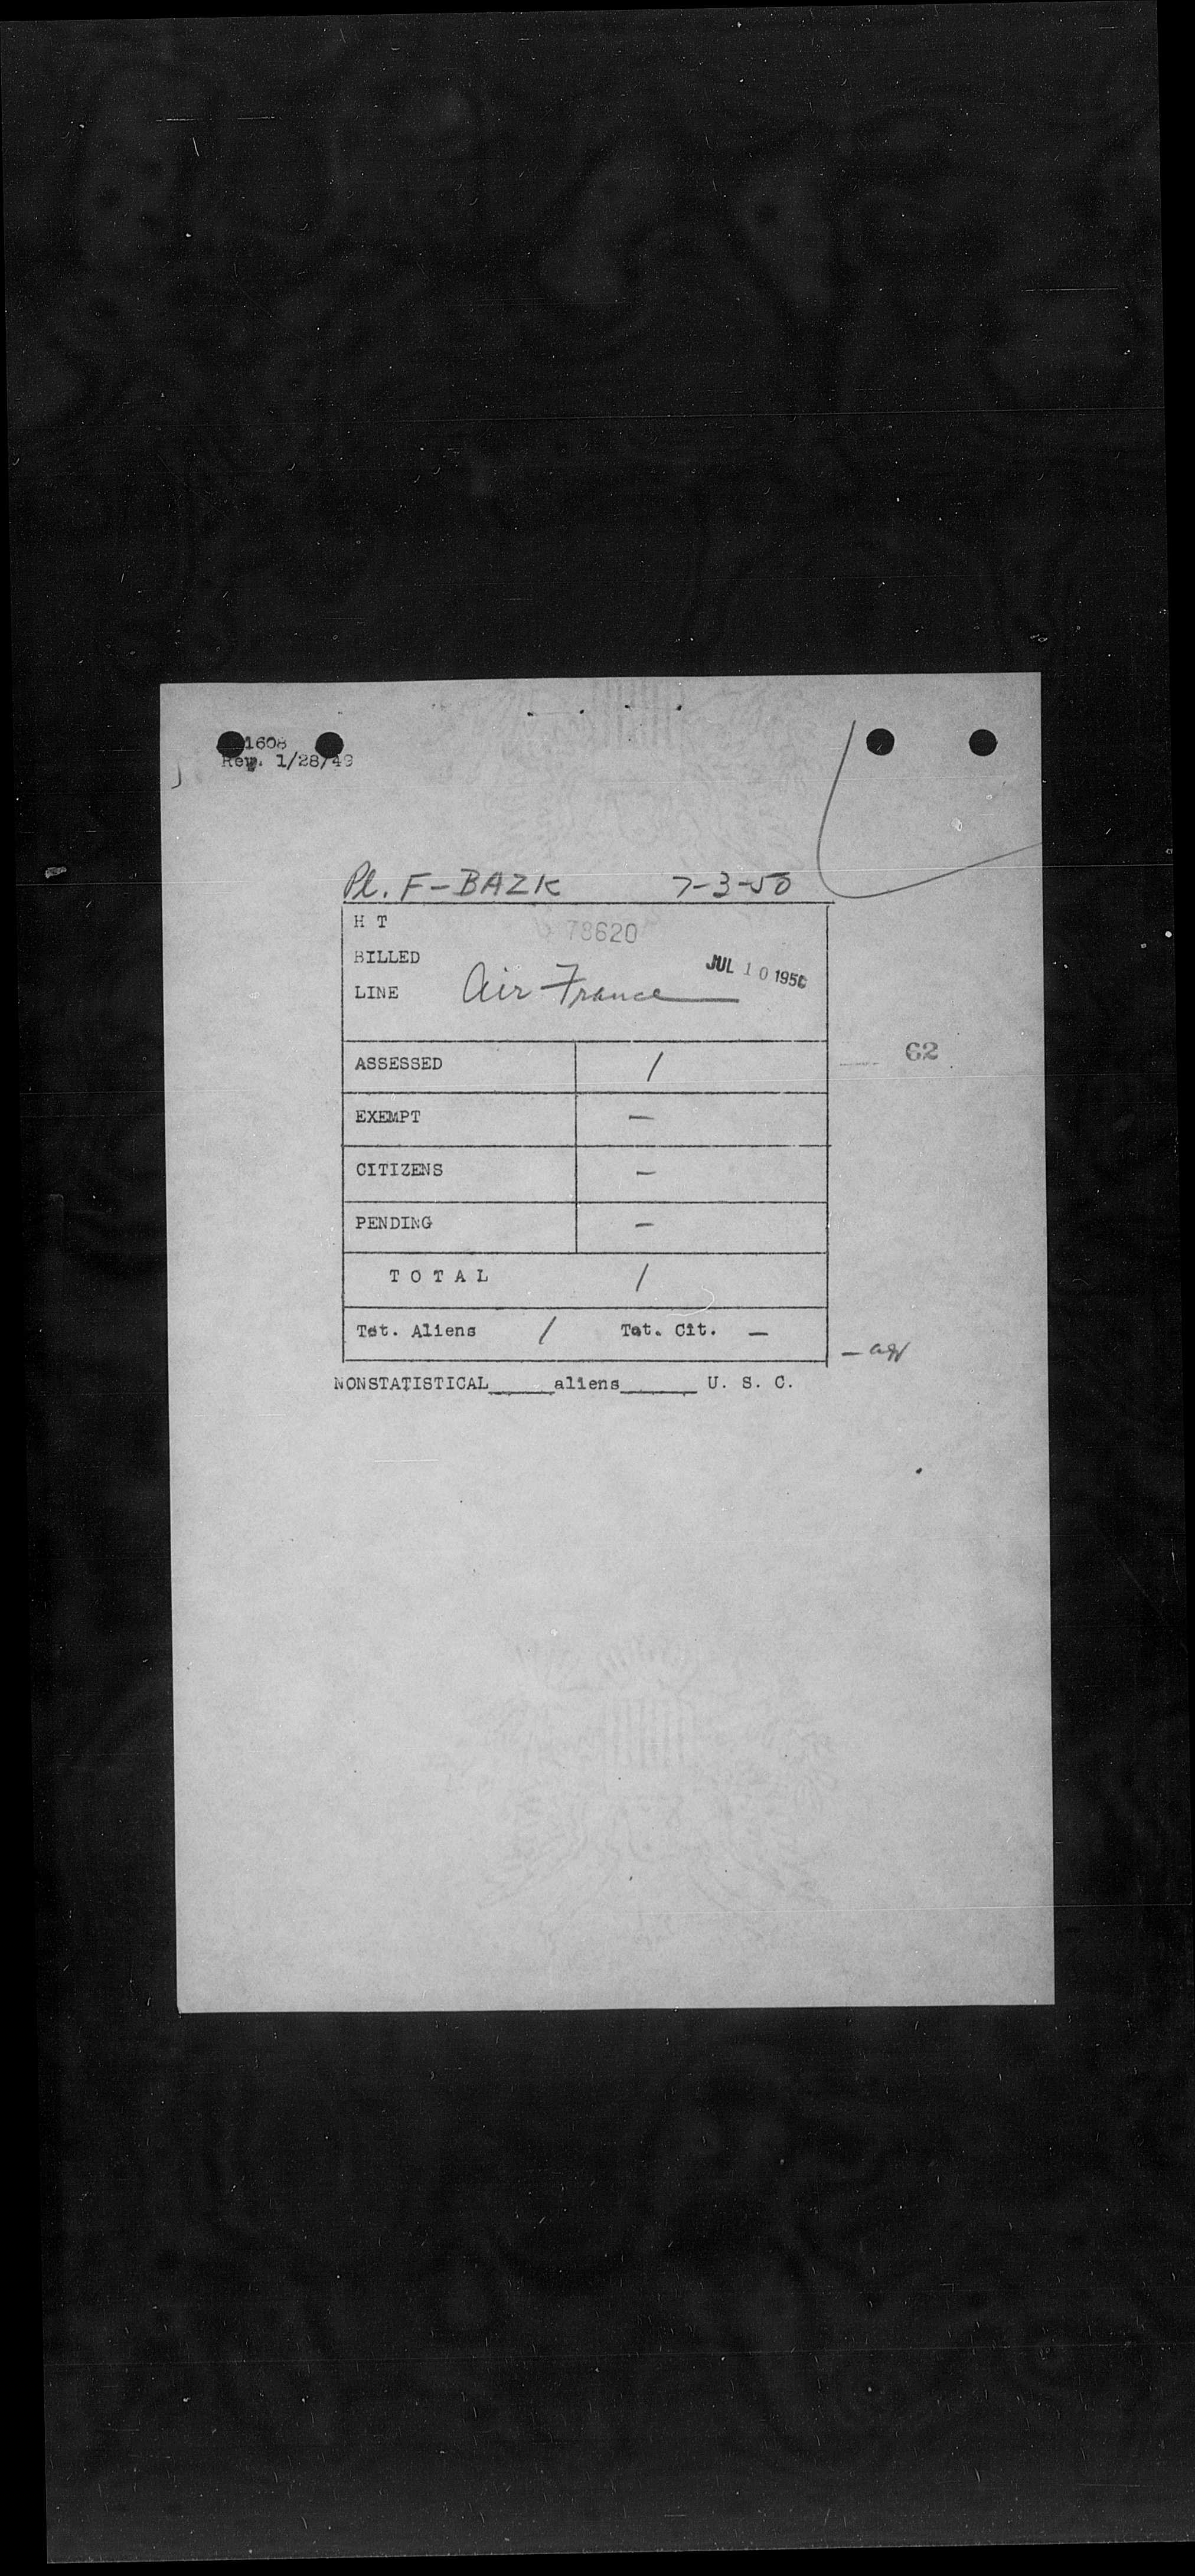 1608
Rev. 1/28/49
Pl. F-BAZK 7-3-50
H T
78620
BILLED
JUL 10 1950
LINE Air France
62
ASSESSED /
EXEMPT —
CITIZENS —
PENDING —
T O T A L /
Tot. Aliens / Tot. Cit. —
NONSTATISTICAL_____aliens______ U. S. C.